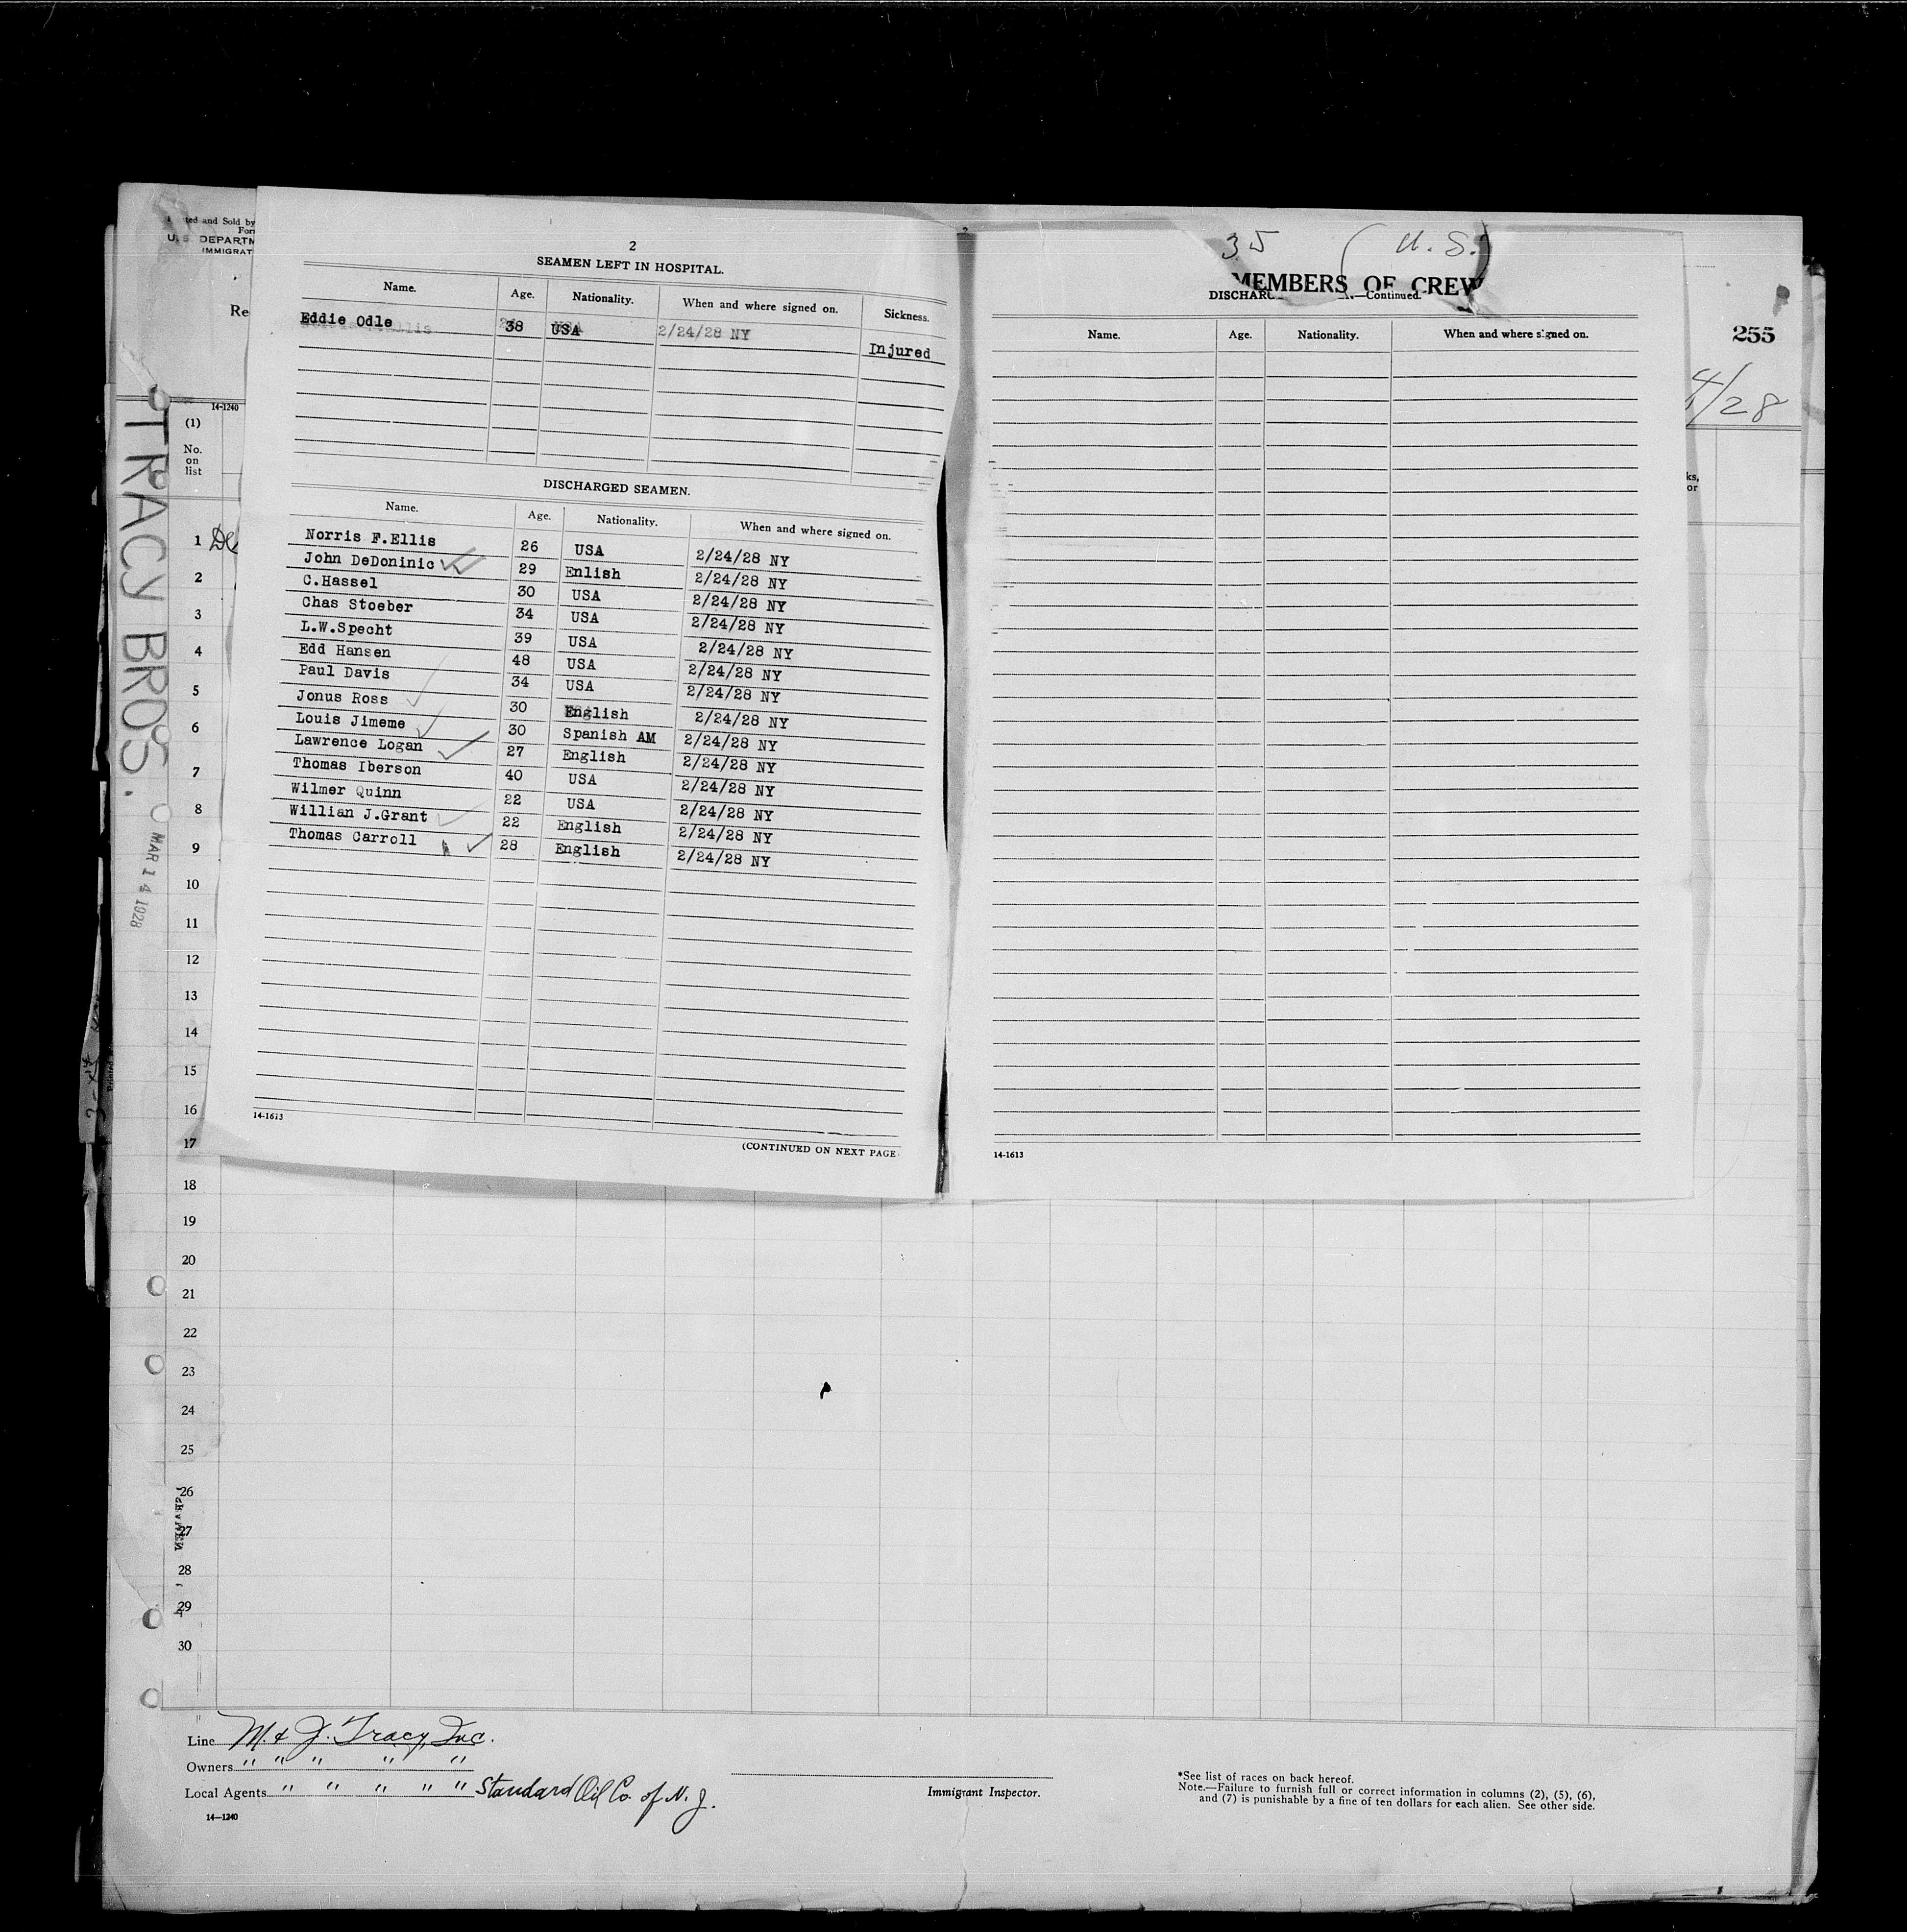 ted and Sold by
For
U. S. DEPARTM
IMMIGRAT
Re
14-1240
(1)
No.
on
list
TRACY BROS.
MAR 14 1928
2
SEAMEN LEFT IN HOSPITAL.
Name. Age. Nationality. When and where signed on. Sickness.
Eddie Odle 38 USA 2/24/28 NY Injured
DISCHARGED SEAMEN.
Name. Age. Nationality. When and where signed on.
Norris F.Ellis 26 USA 2/24/28 NY
John DeDoninic 29 Enlish 2/24/28 NY
C.Hassel 30 USA 2/24/28 NY
Chas Stoeber 34 USA 2/24/28 NY
L.W.Specht 39 USA 2/24/28 NY
Edd Hansen 48 USA 2/24/28 NY
Paul Davis 34 USA 2/24/28 NY
Jonus Ross 30 English 2/24/28 NY
Louis Jimeme 30 Spanish AM 2/24/28 NY
Lawrence Logan 27 English 2/24/28 NY
Thomas Iberson 40 USA 2/24/28 NY
Wilmer Quinn 22 USA 2/24/28 NY
Willian J.Grant 22 English 2/24/28 NY
Thomas Carroll 28 English 2/24/28 NY
14-1613
(CONTINUED ON NEXT PAGE
35 (U.S.)
MEMBERS OF CREW
DISCHARG —Continued.
Name. Age. Nationality. When and where signed on.
14-1613
255
4/28
ks,
or
1
2
3
4
5
6
7
8
9
10
11
12
13
14
15
16
17
18
19
20
21
22
23
24
25
26
27
28
29
30
Line M. & J. Tracy, Inc.
Owners " " " " "
Local Agents " " " " " Standard Oil Co. of N. J.
14—1240
Immigrant Inspector.
*See list of races on back hereof.
Note.—Failure to furnish full or correct information in columns (2), (5), (6),
and (7) is punishable by a fine of ten dollars for each alien. See other side.